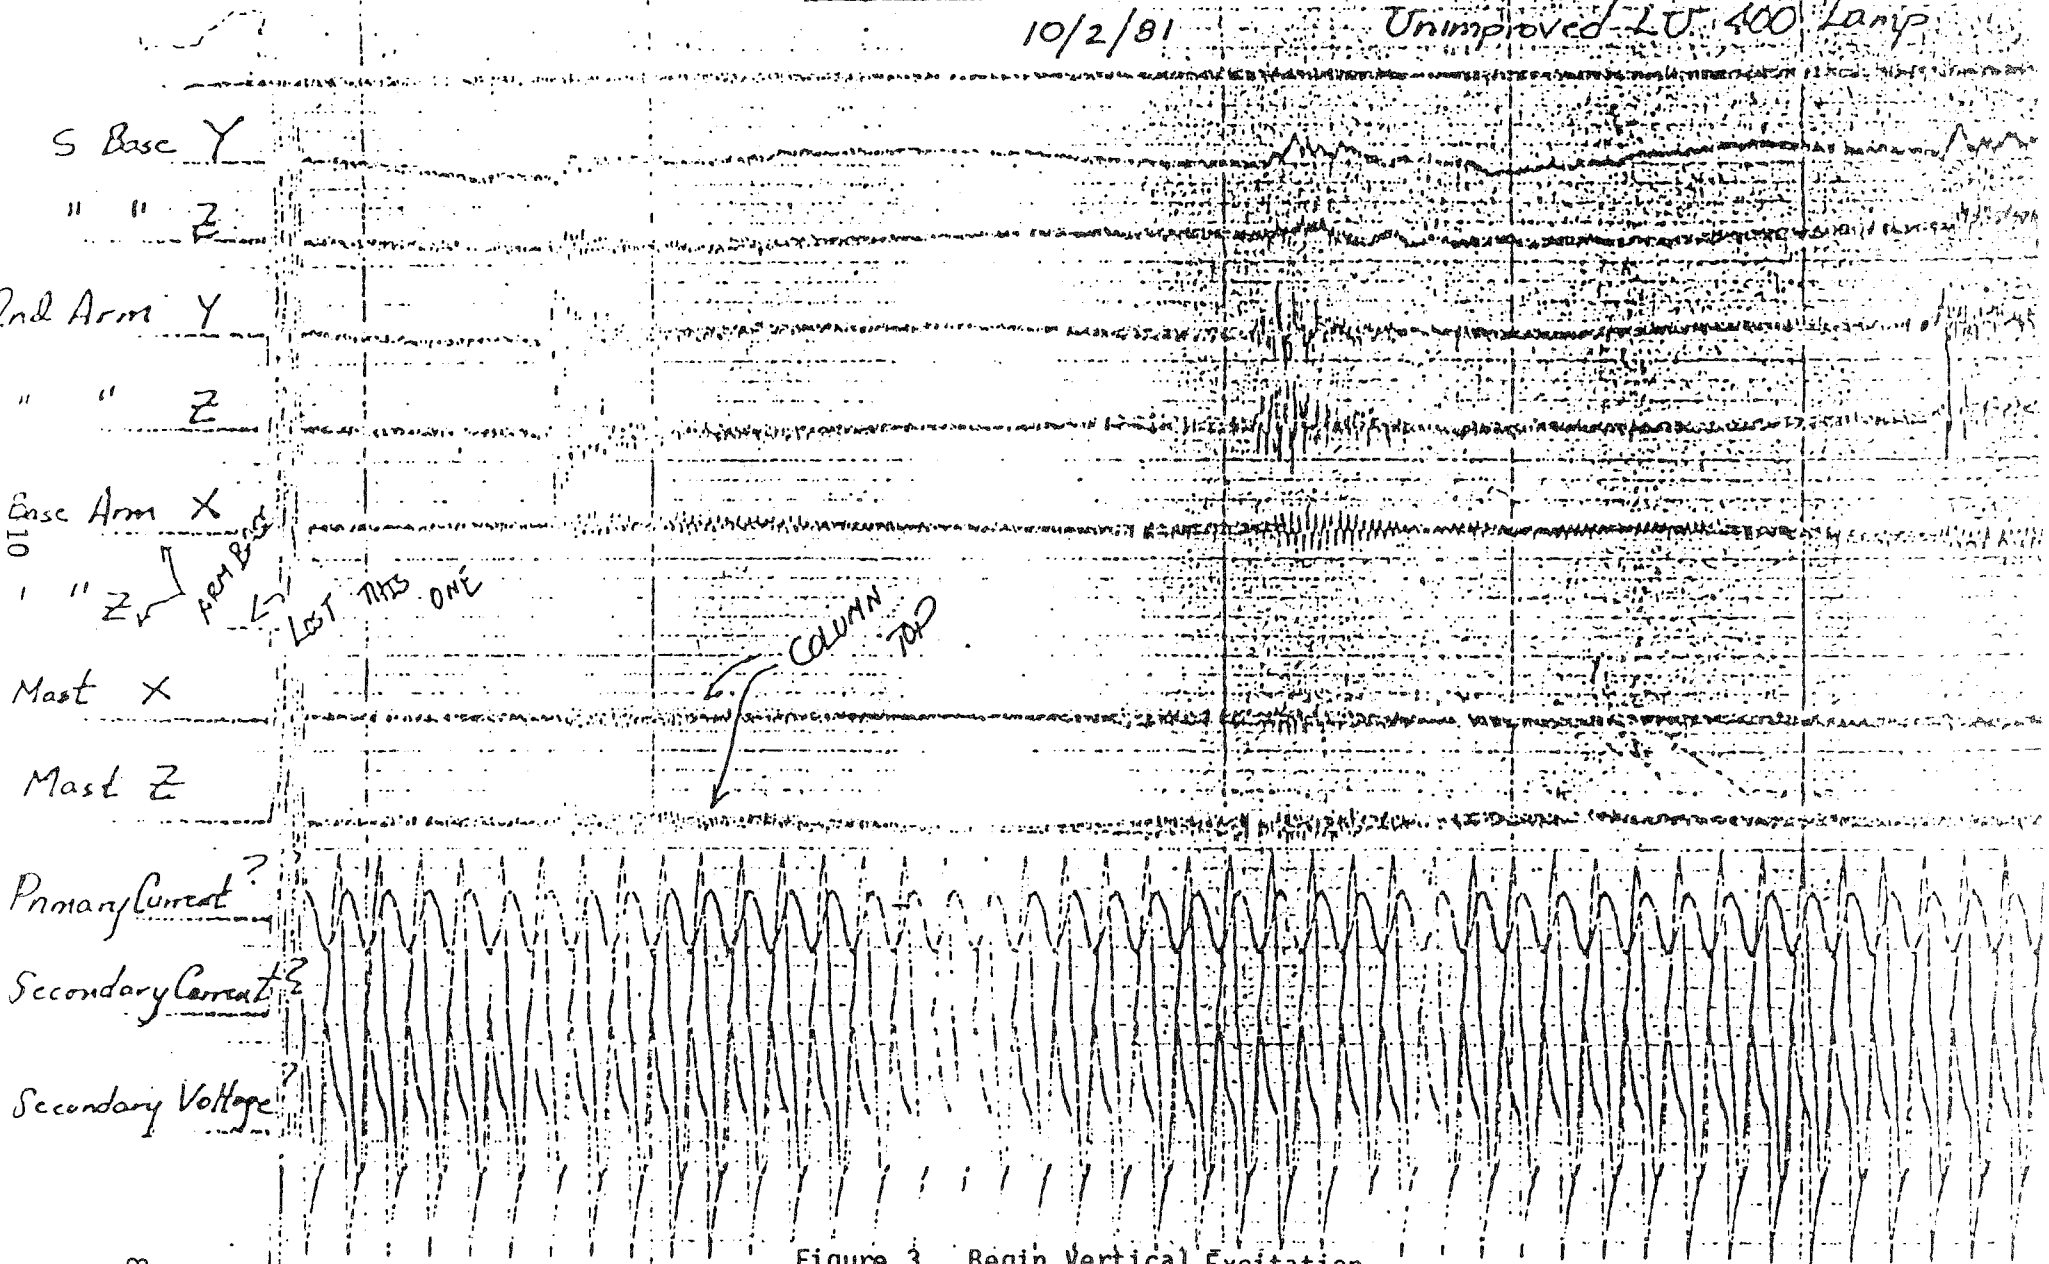 10/2/81
Unimproved LU 400 Lamp
S Base Y
" " Z
2nd Arm Y
" " Z
Base Arm X
" " Z
ARM BASE
LOST THIS ONE
COLUMN TOP
Mast X
Mast Z
Primary Current ?
Secondary Current ?
Secondary Voltage ?
10
Figure 3 Begin Vertical Excitation